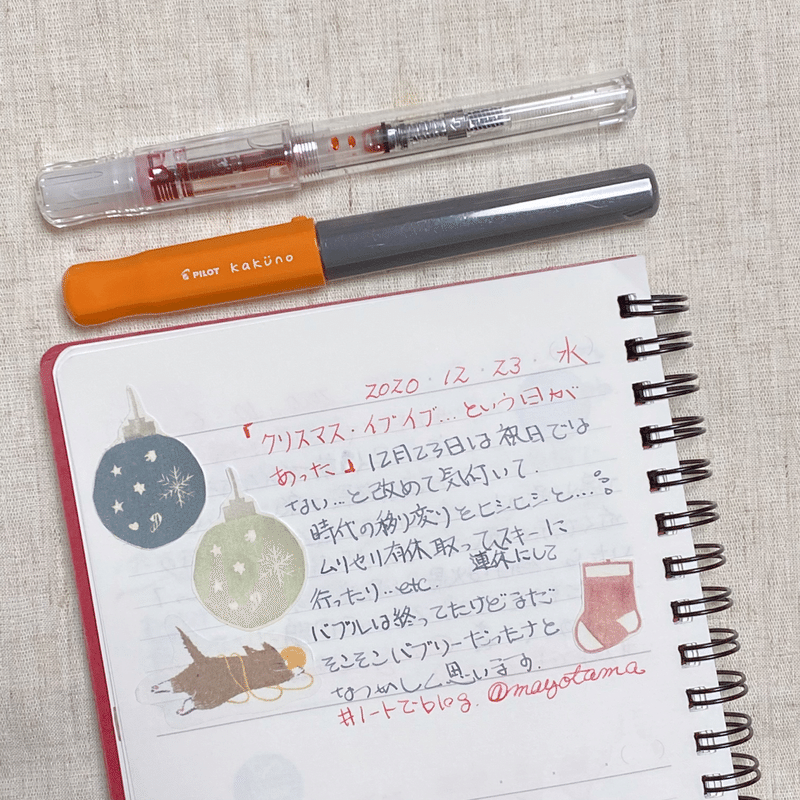 PILOT kaküno
2020・12・23・水
『クリスマス・イブイブ…という日が
あった』12月23日は祝日では
ない…と改めて気付いて.
時代の移り変りをヒシヒシと…。
ムリヤリ有休取ってスキーに
連休にして
行ったり…etc.
バブルは終ってたけどまだ
そこそこバブリーだったナと
なつかしく思います.
#ノートでblog. @mayotama